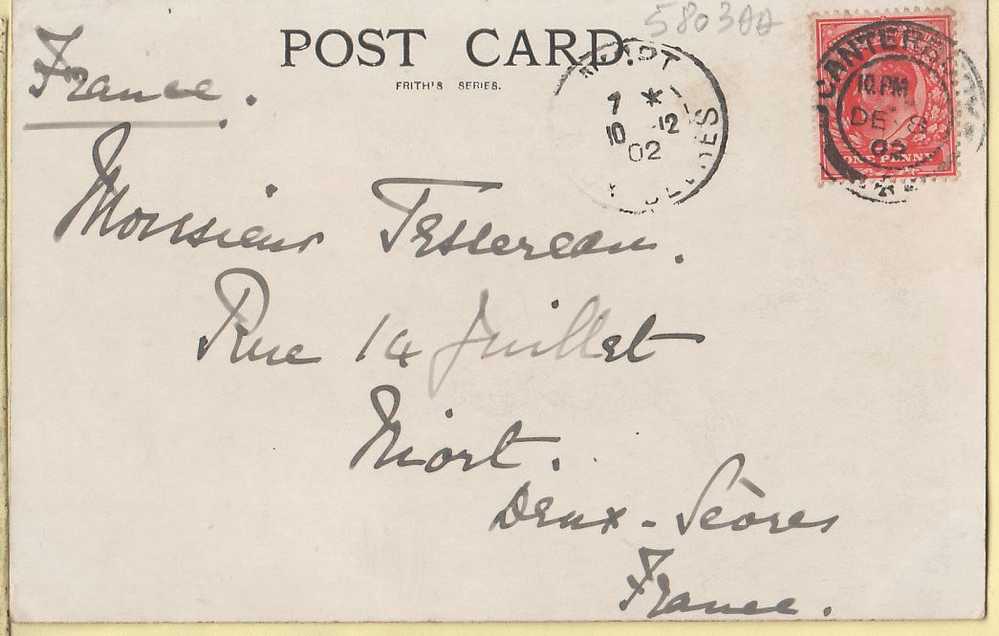 5803AA
POST CARD.
FRITH'S SERIES.
France.
NIORT
7 *
10 -12
02
SEVRES
CANTERBURY
10. PM
DE 8
02
ONE PENNY
Monsieur Tessereau.
Rue 14 Juillet
Niort.
Deux-Sèvres
France.